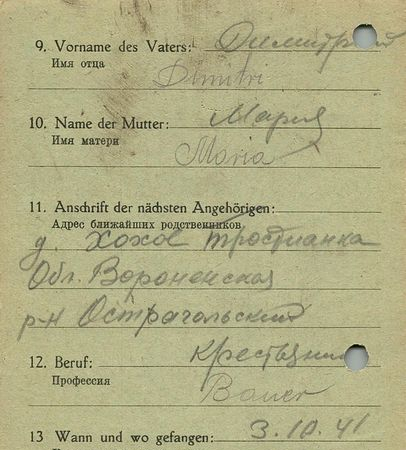 9. Vorname des Vaters: Димитрий
Имя отца
Dimitri
10. Name der Mutter: Мария
Имя матери
Maria
11. Anschrift der nächsten Angehörigen:
Адрес ближайших родственников
д. Хохол Тростианка
Обл. Вороненская
р-н Острагольский
12. Beruf: Крестьянин
Профессия
Bauer
13 Wann und wo gefangen: 3.10.41